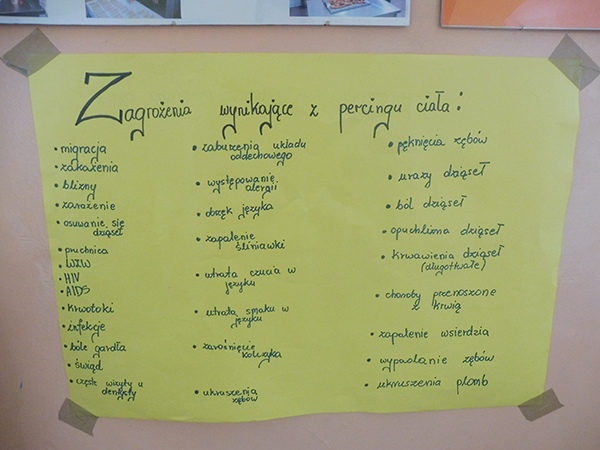 Zagrożenia wynikające z percingu ciała:
• migracja
• zakażenia
• blizny
• zarażenie
• osuwanie się
dziąseł
• próchnica
• WZW
• HIV
• AIDS
• krwotoki
• infekcje
• bóle gardła
• świąd
• częste wizyty u
dentysty
• zaburzenia układu
oddechowego
• występowanie
alergii
• obrzęk języka
• zapalenie
ślinianki
• utrata czucia w
języku
• utrata smaku w
języku
• zarośnięcie
kolczyka
• ukruszenia
zębów
• pęknięcia zębów
• urazy dziąseł
• ból dziąseł
• opuchlizna dziąseł
• krwawienia dziąseł
(długotrwałe)
• choroby przenoszone
z krwią
• zapalenie wsierdzia
• wypadanie zębów
• ukruszenia plomb